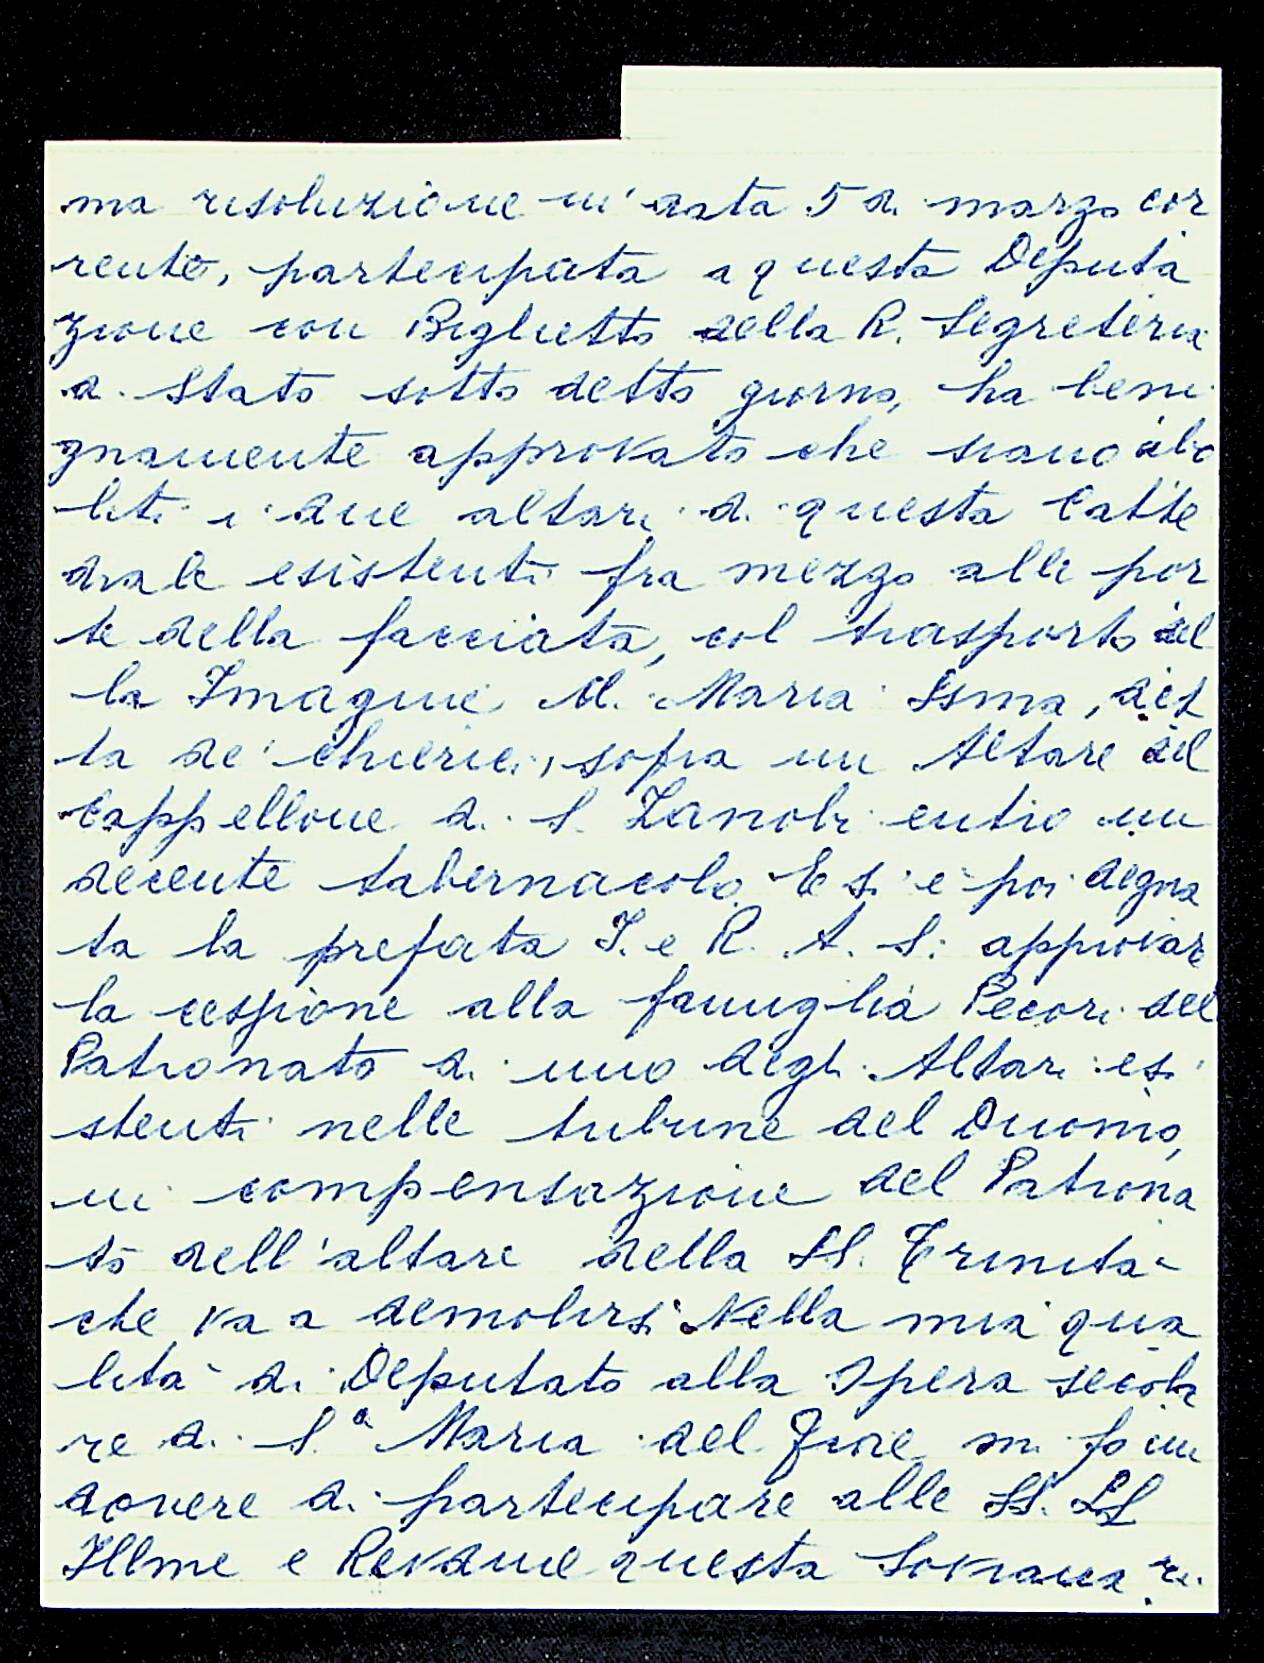 ma risoluzione in data 5 di marzo cor
rente, partecipata a questa Deputa
zione con Biglietto della R. Segreteria
di Stato sotto detto giorno, ha beni
gnamente approvato che siano abo
liti i due altari di questa Catte
drale esistenti fra mezzo alle por
te della facciata, col trasporto del
la Imagine di Maria Ssma, det
ta de' chierici, sopra un Altare del
Cappellone di S. Zanobi entro un
decente tabernacolo. E si è poi degna
ta la prefata I. e R. A. S. approvare
la cessione alla famiglia Pecori del
Patronato di uno degli Altari esi
stenti nelle tribune del Duomo,
in compensazione del Patrona
to dell'altare della SS. Trinità
che va a demolirsi. Nella mia qua
lità di Deputato alla Opera secola
re di S.a Maria del Fiore mi fo un
dovere di partecipare alle SS. LL
Illme e Revdme questa Sovrana ri